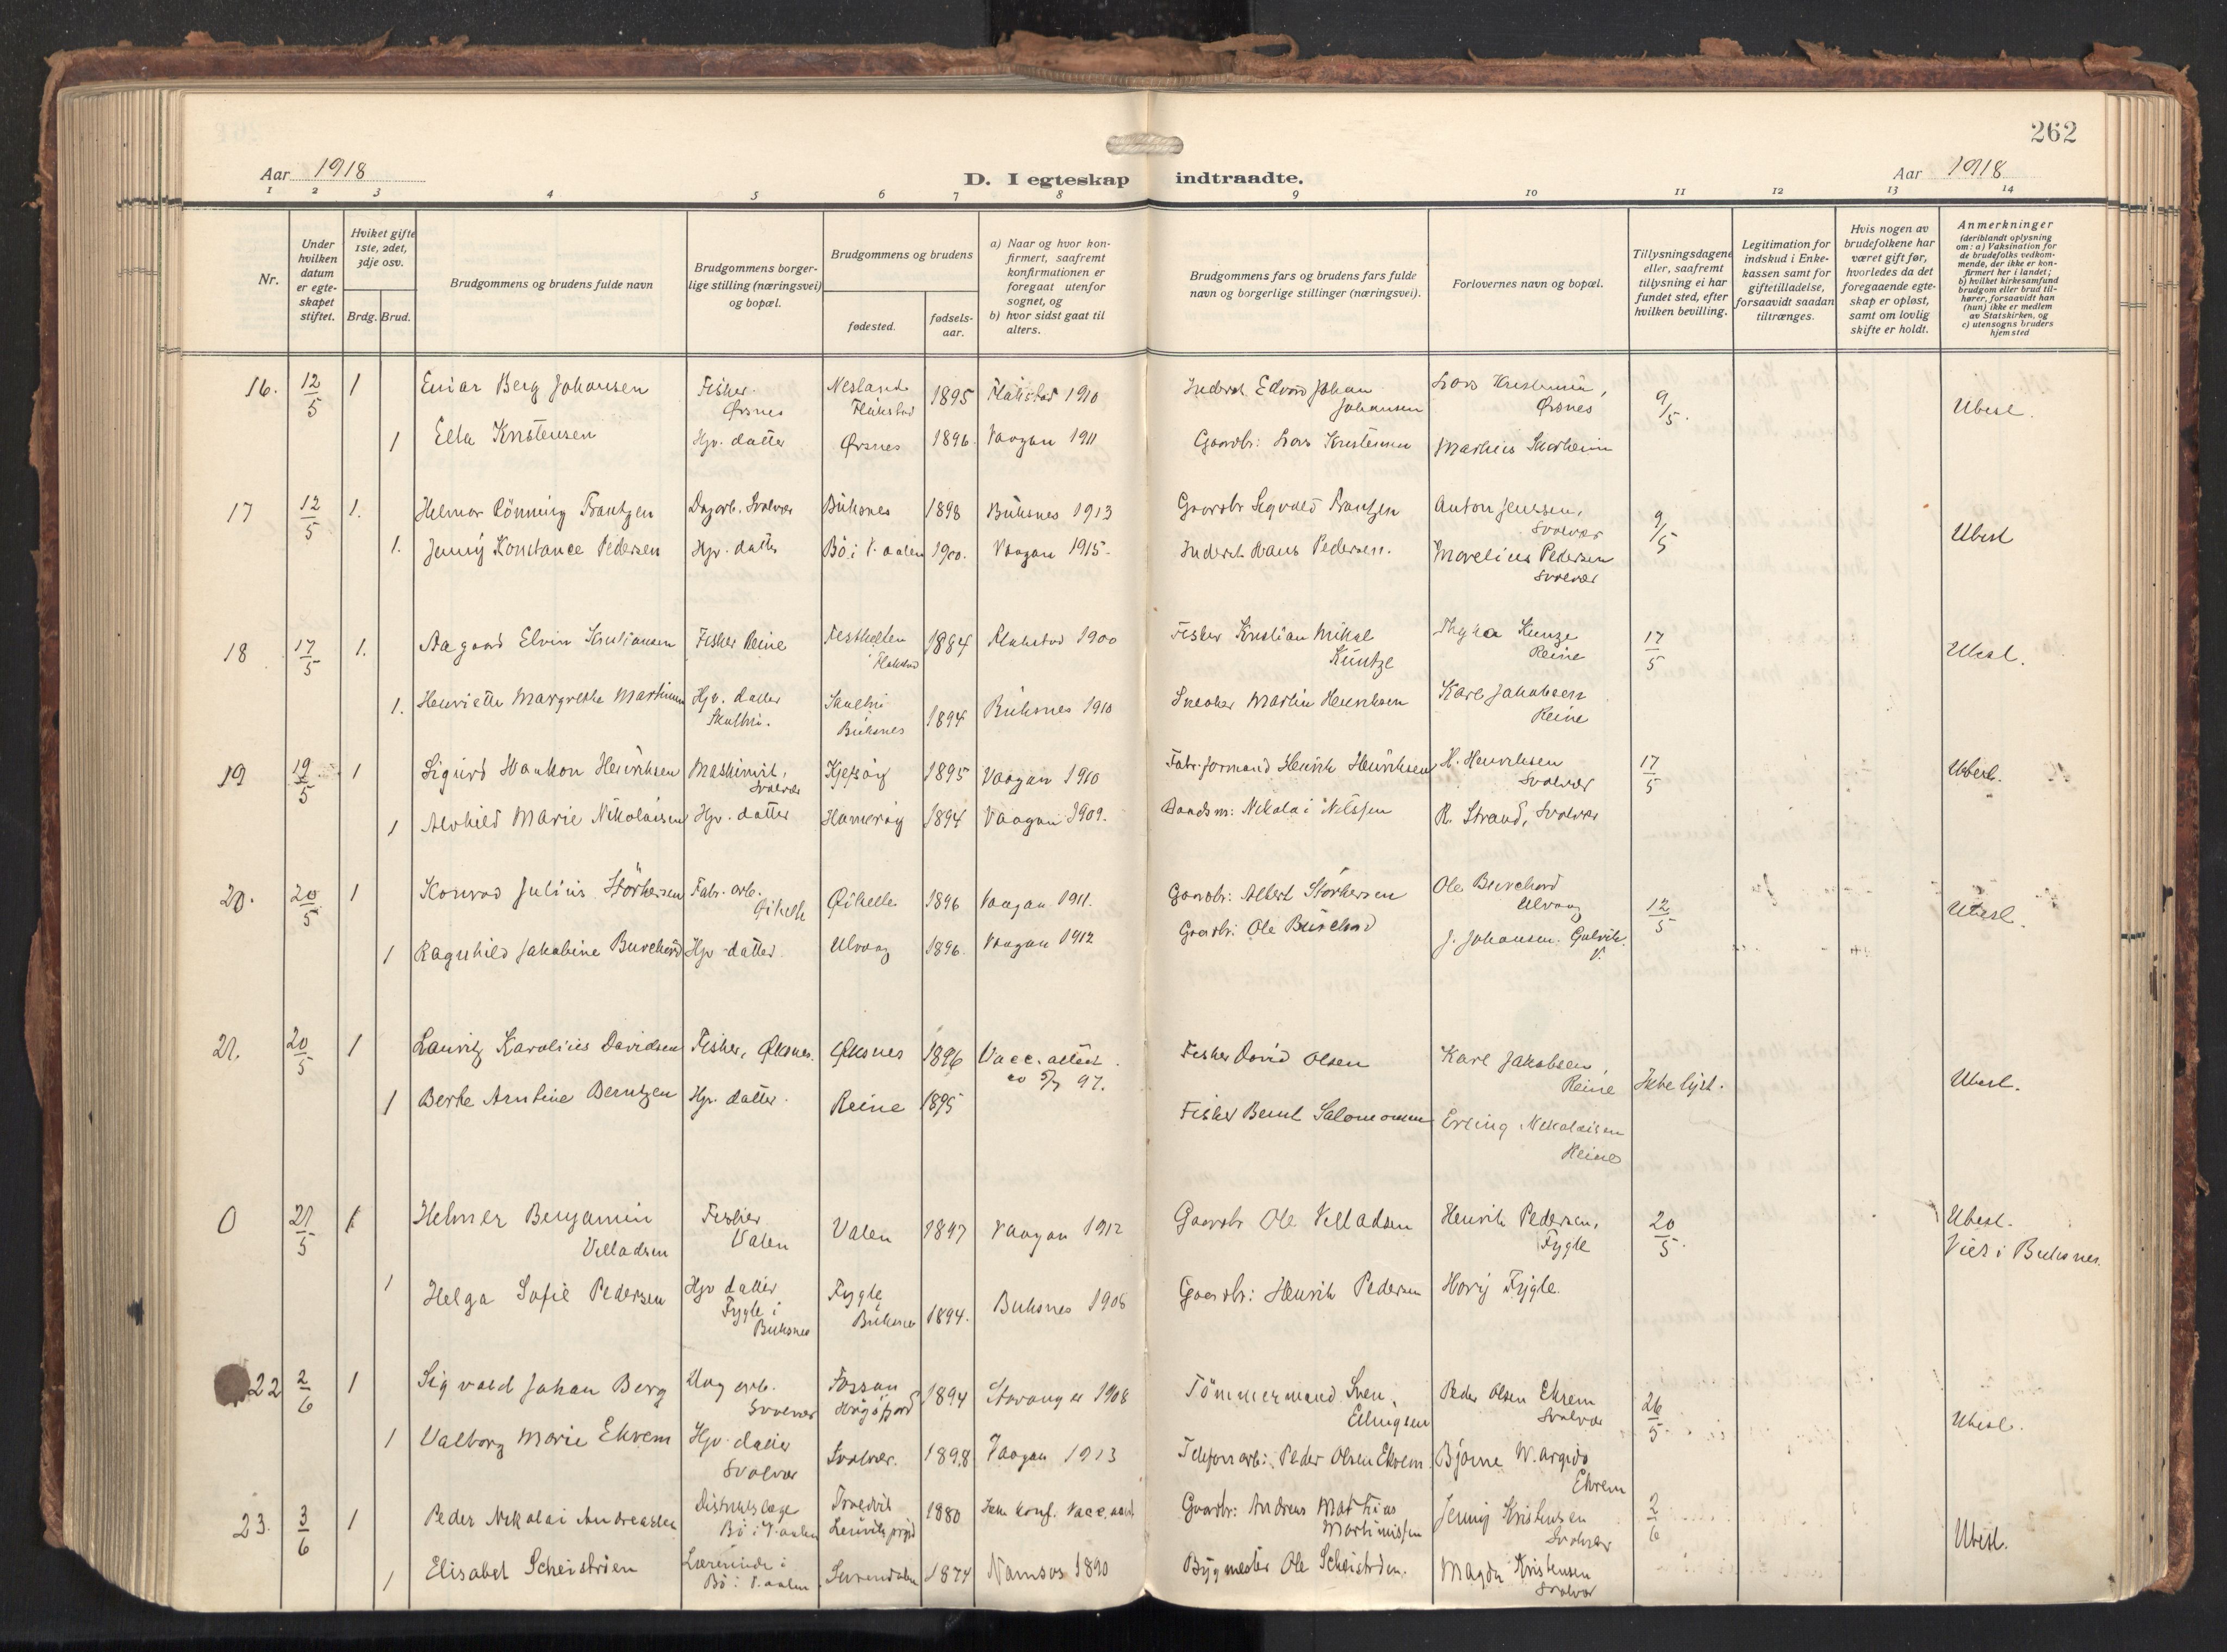 262
Aar 1918
D. I egteskap indtraadte.
Aar 1918
1 2 3 4 5 6 7 8 9 10 11 12 13 14
Nr.
Under hvilken datum er egte-skapet stiftet.
Hviket gifte 1ste, 2det, 3dje osv.
Brdg. Brud.
Brudgommens og brudens fulde navn
Brudgommens borger-lige stilling (næringsvei) og bopæl.
Brudgommens og brudens
fødested.
fødsels-aar.
a) Naar og hvor kon-firmert, saafremt konfirmationen er foregaat utenfor sognet, og
b) hvor sidst gaat til alters.
Brudgommens fars og brudens fars fulde navn og borgerlige stillinger (næringsvei).
Forlovernes navn og bopæl.
Tillysningsdagene eller, saafremt tillysning ei har fundet sted, efter hvilken bevilling.
Legitimation for indskud i Enke-kassen samt for giftetilladelse, forsaavidt saadan tiltrænges.
Hvis nogen av brudefolkene har været gift før, hvorledes da det foregaaende egte-skap er opløst, samt om lovlig skifte er holdt.
Anmerkninger (deriblandt oplysning om: a) Vaksination for de brudefolks vedkom-mende, der ikke er kon-firmert her i landet; b) hvilket kirkesamfund brudgom eller brud til-hører, forsaavidt han (hun) ikke er medlem av Statskirken, og c) utensogns bruders hjemsted
16. 12/5 1 Einar Berg Johansen Fisker Ørsnes Nesland Flakstad 1895 Flakstad 1910 Inderst Edvard Johan Johansen Lars Kristensen, Ørsnes 9/5. Ubesl.
1 Ella Kristensen Hjv. datter Ørsnes 1896 Vaagan 1911 Gaardbr: Lars Kristensen Mathias
17 12/5 1. Helmar Rönning Frantzen Dagarb. Svolvær Buksnes 1898 Buksnes 1913 Gaardbr Sigvald Frantzen Anton Jenssen, Svolvær 9/5 Ubesl
1. Jenny Konstance Pedersen Hjv. datter Bö i V.aalen 1900. Vaagan 1915. Inderst Hans Pedersen. Marelius Pedersen Svolvær
18 17/5 1. Aagaard Elvin Kristiansen Fisker Reine Flakstad 1884 Flakstad 1900 Fisker Kristian Mikal Küntze Kunze Reine 17/5 Ubesl.
1. Henriette Margrethe Martinsen Hjv. datter Buksnes 1894 Buksnes 1910 Snedker Martin Henriksen Karl Jakobsen Reine
19 19/5 1 Sigurd Haakon Henriksen Maskinist, Svolvær Kjefsöy 1895 Vaagan 1910 Fabr.formand Henrik Henriksen H. Henriksen Svolvær 17/5 Ubesl.
1 Alvhild Marie Nikolaisen Hjv. datter Hamaröy 1894 Vaagan 1909. Baadsm: Nikolai Nilssen R. Strand, Svolvær
20. 20/5 1 Konrad Julius Störkersen Fabr. arb. Öihelle Öihelle 1896 Vaagan 1911. Gaardbr: Albert Störkersen Ole Burchard Ulvaag 12/5 Ubesl.
1 Ragnhild Jakobine Burchard Hjv datter. Ulvaag 1896. Vaagan 1912 Gaardbr: Ole Burchard J. Johansen. Gulvik. V.
21. 20/5 1 Lauritz Karolius Davidsen Fisker, Øksnes. Øksnes 1896 Vacc. attest av 5/7 97. Fisker David Olsen Karl Jakobsen, Reine Ikke lyst. Ubesl.
1 Berte Arntine Berntzen Hjv. datter. Reine 1895 Fisker Bernt Salomonsen Erling Nikolaisen Reine
0 21/5 1 Helmer Benjamin Villadsen Fisker Valen Valen 1897 Vaagan 1912 Gaardbr Ole Villadsen Henrik Pedersen, Fygle 20/5. Ubesl. Viet i Buksnes.
1 Helga Sofie Pedersen Hjv datter Fygle i Buksnes Fygle Buksnes 1894. Buksnes 1908 Gaardbr: Henrik Pedersen Fygle.
22 2/6 1 Sigvald Johan Berg Dag arb. Svolvær Fossan Högsfjord 1894 Stavanger 1908 Tömmermand Sven Ellingsen Peder Olsen Ekrem Svolvær 26/5 Ubesl.
1 Valborg Marie Ekrem Hjv. datter Svolvær Svolvær. 1898 Vaagan 1913 Telefonarb: Peder Olsen Ekrem Bjarne W. Ekrem
23. 3/6 1 Peder Nikolai Andreassen Distriktslæge Bö i V.aalen Lenvik prgjd 1880 Ikke konf. Vacc. Gaardbr: Andreas Mathias Martinissen Jenny Kristensen Svolvær 2/6 Ubesl.
1 Elisabet Scheiströen Lærerinde i Bö i V.aalen Surendalen 1874 Namsos 1890 Bygmester Ole Scheiströen. Magda Kristensen Svolvær